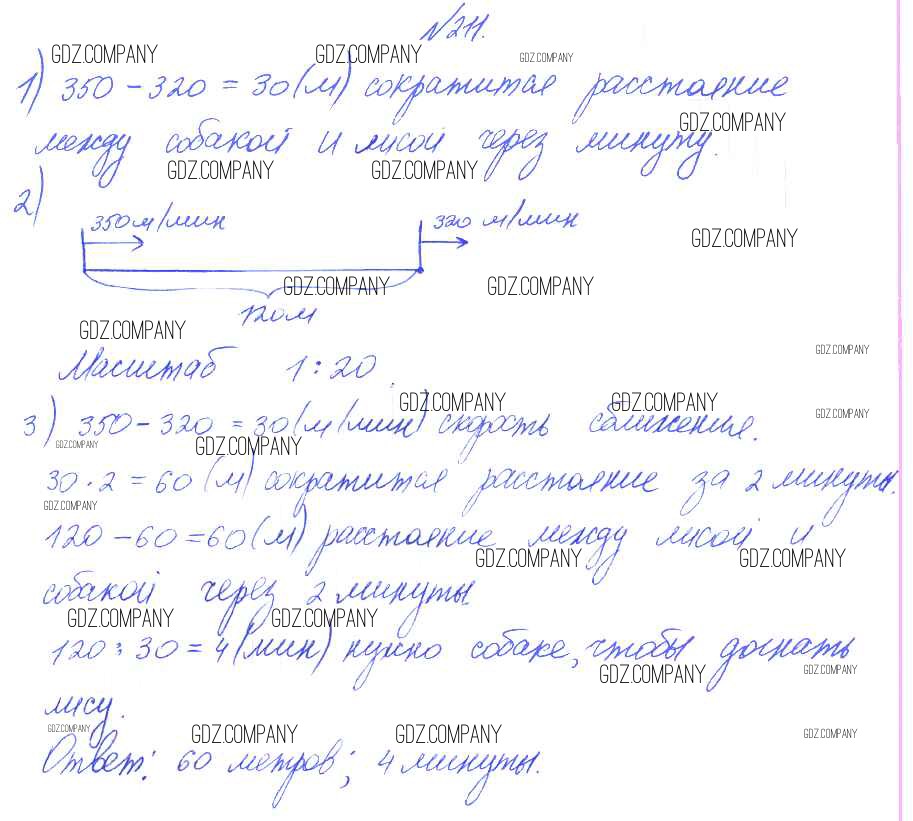 №211.
GDZ.COMPANY GDZ.COMPANY GDZ.COMPANY
1) 350 - 320 = 30 (м) сократится расстояние
GDZ.COMPANY
между собакой и лисой через минуту.
GDZ.COMPANY GDZ.COMPANY
2)
350 м/мин 320 м/мин
GDZ.COMPANY
GDZ.COMPANY GDZ.COMPANY
120м
GDZ.COMPANY
GDZ.COMPANY
Масштаб 1 : 20
GDZ.COMPANY GDZ.COMPANY GDZ.COMPANY
3) 350 - 320 = 30 (м/мин) скорость сближения.
GDZ.COMPANY GDZ.COMPANY
30 · 2 = 60 (м) сократится расстояние за 2 минуты.
GDZ.COMPANY
120 - 60 = 60 (м) расстояние между лисой и
GDZ.COMPANY GDZ.COMPANY
собакой через 2 минуты
GDZ.COMPANY GDZ.COMPANY
120 : 30 = 4 (мин) нужно собаке, чтобы догнать
GDZ.COMPANY GDZ.COMPANY
лису.
GDZ.COMPANY GDZ.COMPANY GDZ.COMPANY GDZ.COMPANY
Ответ: 60 метров; 4 минуты.